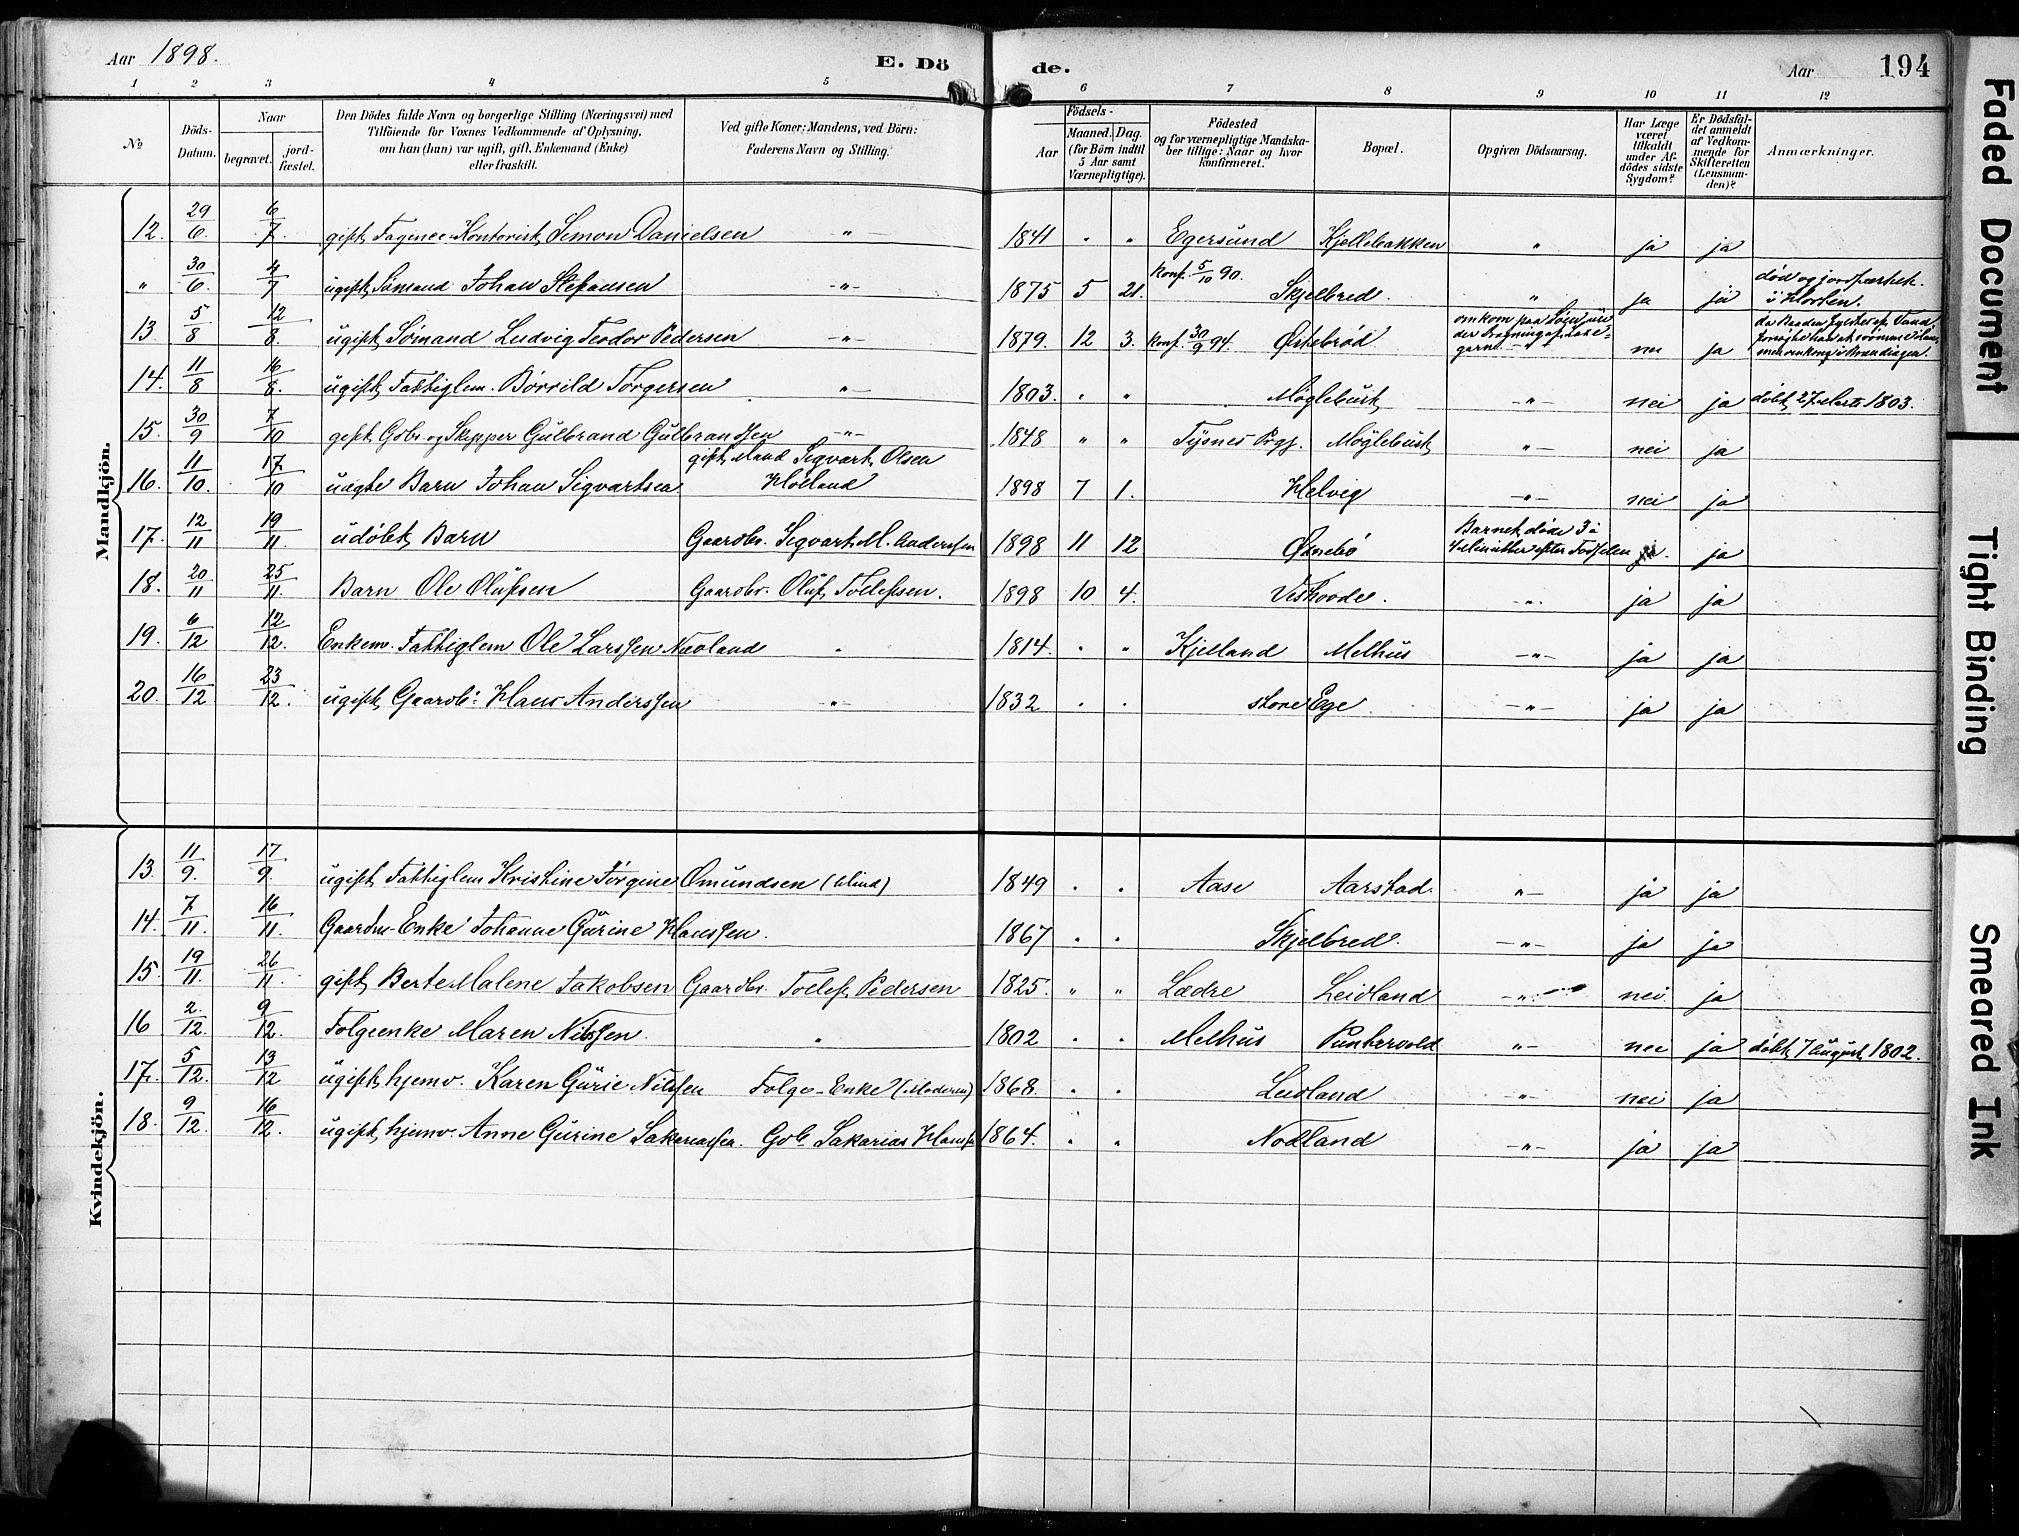 Aar 1898. E. Dö de. Aar 194
1 2 3 4 5 6 7 8 9 10 11 12
№ Döds-Datum. Naar begravet. jord-fæstet. Den Dödes fulde Navn og borgerlige Stilling (Næringsvei) med Tilföiende for Voxnes Vedkommende af Oplysning, om han (hun) var ugift, gift, Enkemand (Enke) eller fraskilt. Ved gifte Koner: Mandens, ved Börn: Faderens Navn og Stilling. Födsels- Aar Maaned. Dag. (for Börn indtil 5 Aar samt Værnepligtige). Födested og for værnepligtige Mandskaber tillige: Naar og hvor konfirmeret. Bopæl. Opgiven Dödsaarsag. Har Læge været tilkaldt under Afdödes sidste Sygdom? Er Dödsfaldet anmeldt af Vedkommende for Skifteretten (Lensmanden)? Anmærkninger.
Mandkjön.
12. 29/6. 6/7. gift Fayence-Kontorist Simon Danielsen " 1841 " " Egersund Kjellebakken " ja ja
" 30/6. 4/7 ugift Sømand Johan Stefansen " 1875 5 21. Konf. 5/10 90. Skjelbred. " ja ja død og jordfæstet i Horten.
13. 5/8 12/8. ugift Sømand Ludvig Teodor Pedersen " 1879. 12 3. Konf. 30/9 94. Østebrød omkom paa Søen under nei ja
14. 11/8 16/8. ugift Fattiglem. Børrild Torgersen " 1803. " " Møglebust " nei ja døbt 27 Marts 1803.
15. 30/9 7/10 gift Gbr. og Skipper Gulbrand Gulbrandsen " 1848 " " Tysnes Prgj. Møglebust " nei ja
16. 11/10. 17/10 uægte Barn Johan Sigvartsen gift Mand Sigvart Olsen Hovland 1898 7 1. Helvig " nei ja
17. 12/11 19/11. udøbt Barn Gaardbr. Sigvart M. Anderssen 1898 11 12 Øsnebø Barnet døde 3 à 4 Minutter efter Fødselen ja. ja
18. 20/11 25/11. Barn Ole Olufsen Gaardbr. Oluf Tollefsen. 1898 10 4. Veshovde. " ja ja
19. 6/12 12/12. Enkem. Fattiglem Ole Larssen Nevland " 1814. " " Kjelland Melhus " ja ja
20. 16/12 23/12. ugift Gaardb: Hans Anderssen " 1832 " " store Ege " ja ja
Kvindekjön.
13. 11/9. 17/9. ugift Fattiglem Kristine Jørgine Omundsen (blind) 1849 " " Aase Aarstad. " ja ja
14. 7/11. 16/11. Gaardm. Enke Johanne Gurine Hanssen. 1867 " " Skjelbred. " ja ja
15. 19/11. 26/11. gift Berte Malene Jakobsen Gaardbr. Tollef Pedersen 1825. " " Lædre Leidland " nei. ja
16 2./12. 9/12. Folgeenke Maren Nilssen. " 1802 " " Melhus Puntervold " nei ja døbt 7 August 1802.
17. 5/12. 13/12 ugift hjemv. Karen Gurie Nilssen Folge-Enke (Moderen) 1868. " " Leidland " nei ja
18. 9/12. 16/12. ugift hjemv. Anne Gurine Sakariassen. Gb. Sakarias Hanss. 1864. " " Nodland " ja ja
Faded Document
Tight Binding
Smeared Ink